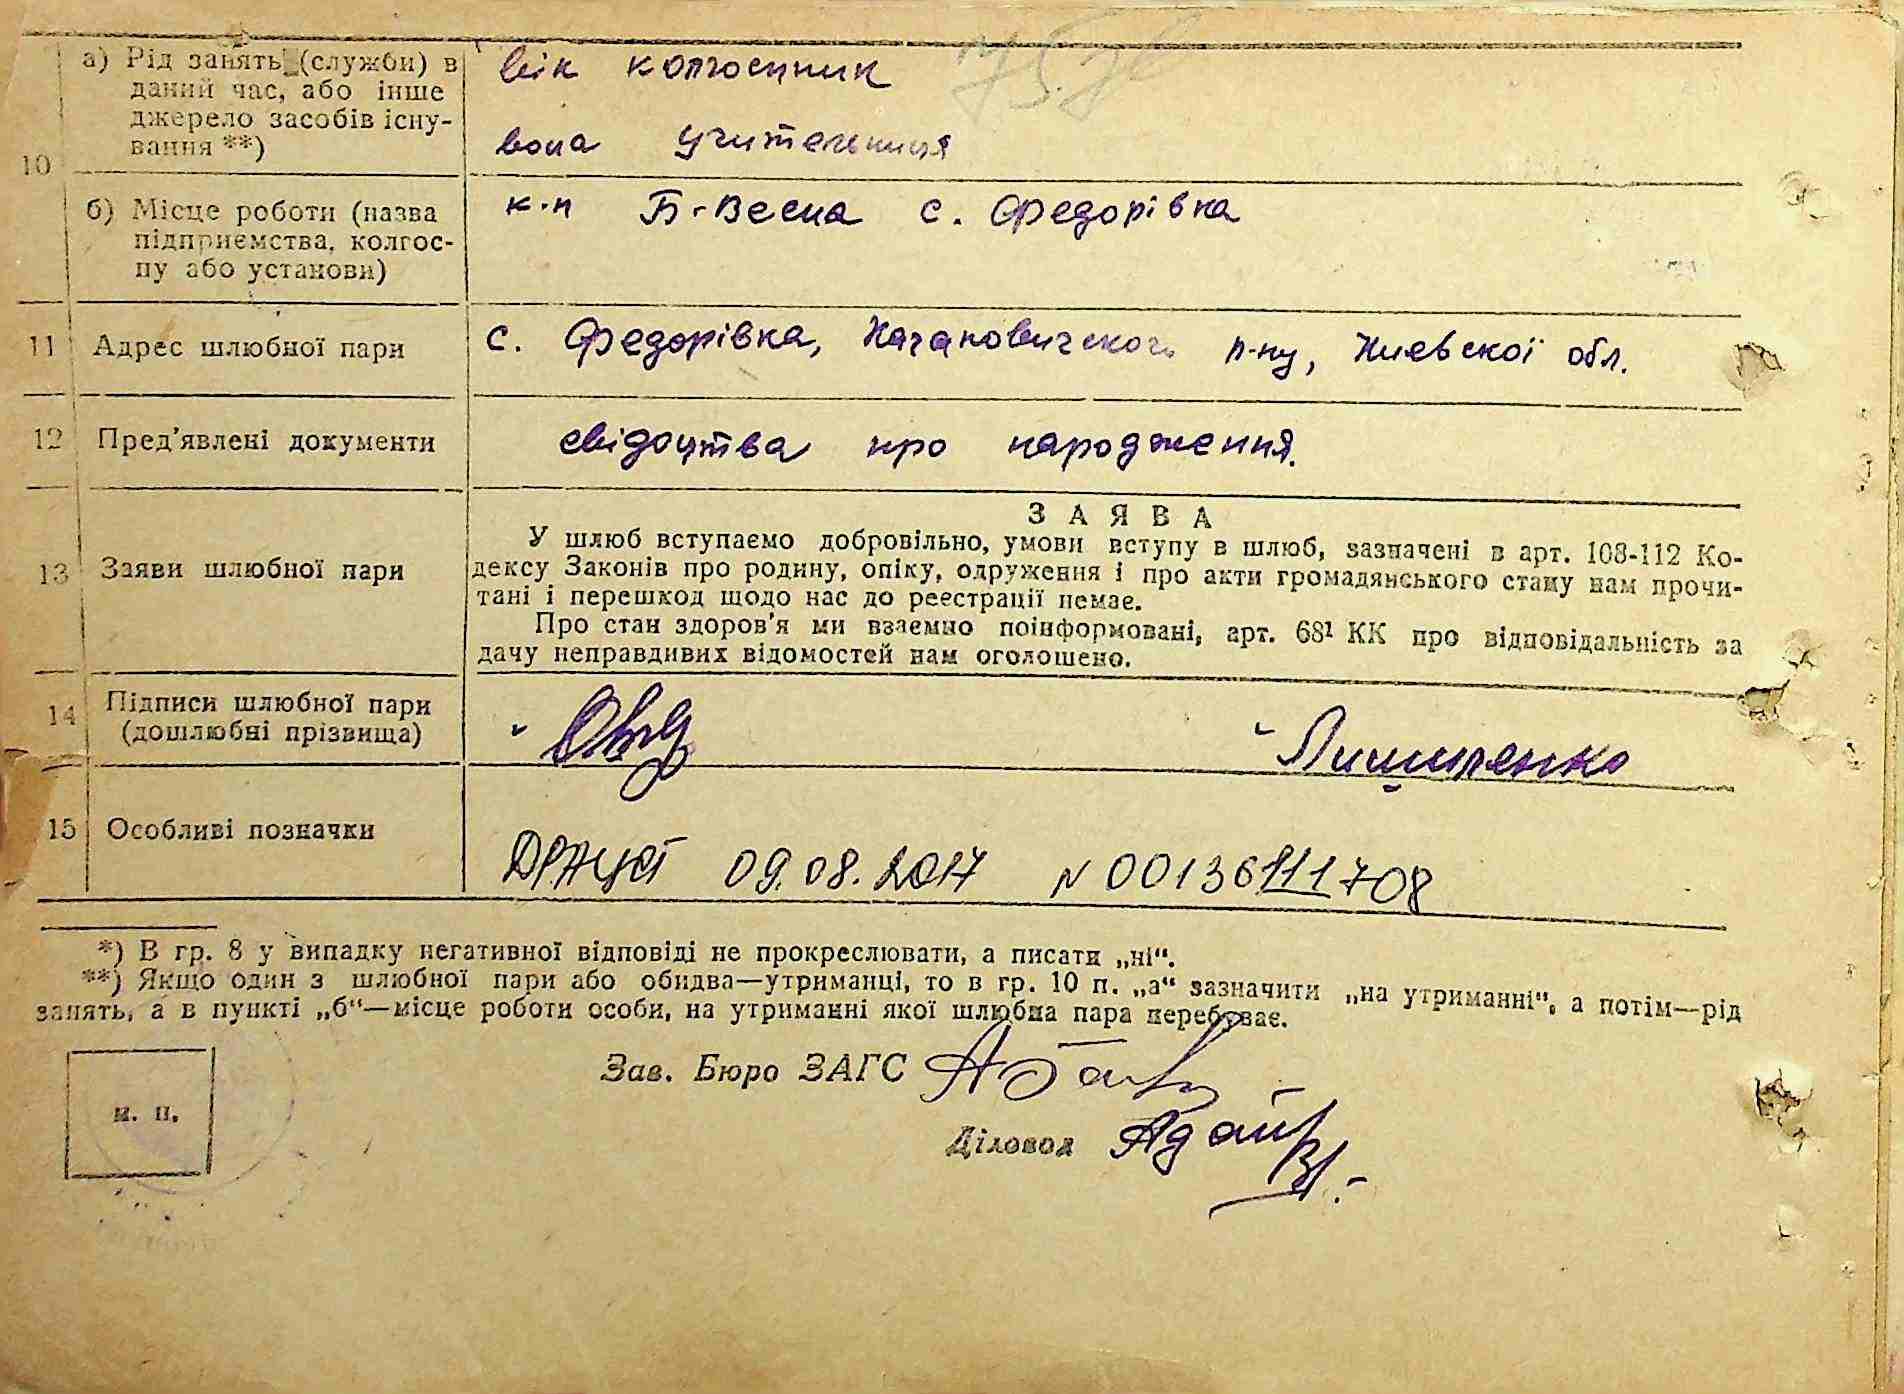 10
а) Рід занять (служби) в
даний час, або інше
джерело засобів існу-
вання **)
він колгоспник
вона учителниця
б) Місце роботи (назва
підприємства, колгос-
пу або установи)
к-п Б-Весна с. Федорівка
11 Адрес шлюбної пари
с. Федорівка, Качановичского р-ну, Киевскої обл.
12 Пред'явлені документи
свідоцтва про народження.
13 Заяви шлюбної пари
ЗАЯВА
У шлюб вступаємо добровільно, умови вступу в шлюб, зазначені в арт. 108-112 Ко-
дексу Законів про родину, опіку, одруження і про акти громадянського стану нам прочи-
тані і перешкод щодо нас до реєстрації немає.
Про стан здоров'я ми взаємно поінформовані, арт. 68¹ КК про відповідальність за
дачу неправдивих відомостей нам оголошено.
14 Підписи шлюбної пари
(дошлюбні прізвища)
15 Особливі позначки
09.08.2017 N 00136111708
*) В гр. 8 у випадку негативної відповіді не прокреслювати, а писати „ні“.
**) Якщо один з шлюбної пари або обидва—утриманці, то в гр. 10 п. „а“ зазначити „на утриманні“, а потім—рід
занять, а в пункті „б“—місце роботи особи, на утриманні якої шлюбна пара перебуває.
Зав. Бюро ЗАГС
м. п.
Діловод